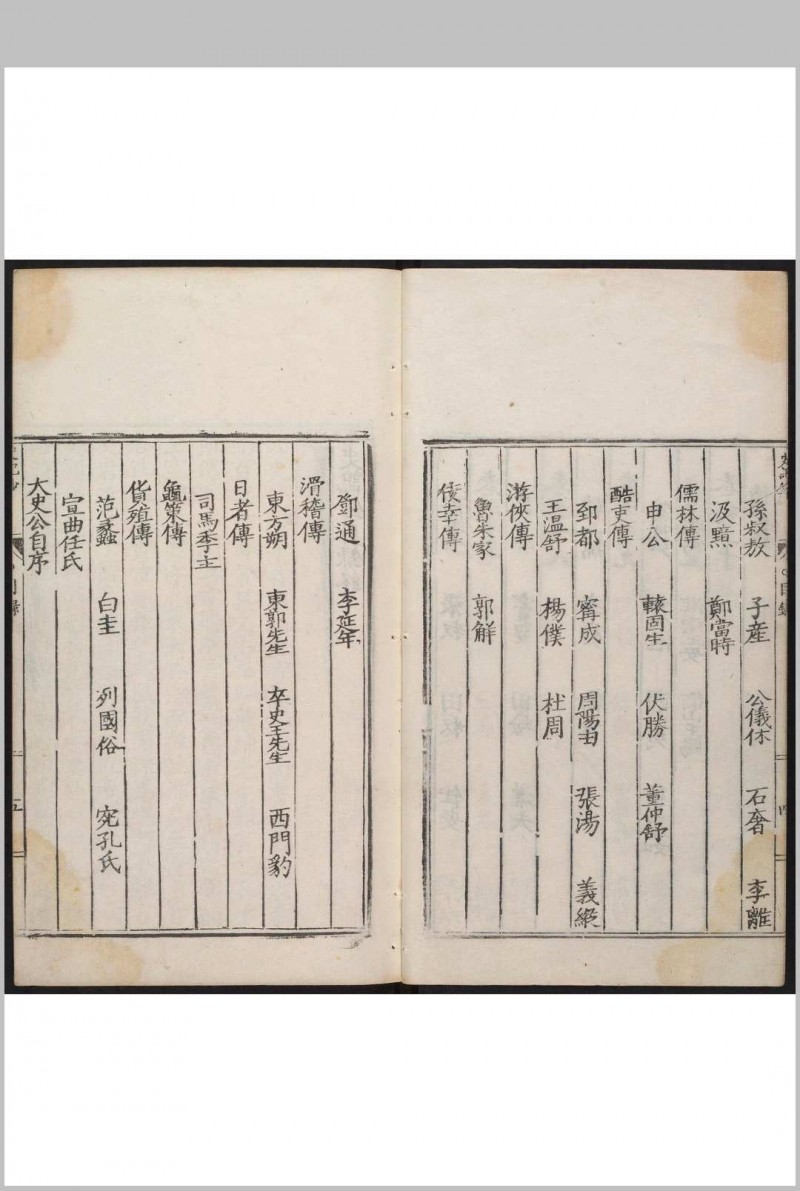 孫叔敖 子産 公儀休 石奢 李離
汲黯 鄭當時
儒林傳
申公 轅固生 伏勝 董仲舒
酷吏傳
郅都 甯成 周陽由 張湯 義縱
王温舒 楊僕 杜周
游俠傳
魯朱家 郭解
佞幸傳
鄧通 李延年
滑稽傳
東方朔 東郭先生 卒史王先生 西門豹
日者傳
司馬季主
龜策傳
貨殖傳
范蠡 白圭 列國俗 宛孔氏
宣曲任氏
太史公自序
目錄
四
目錄
五